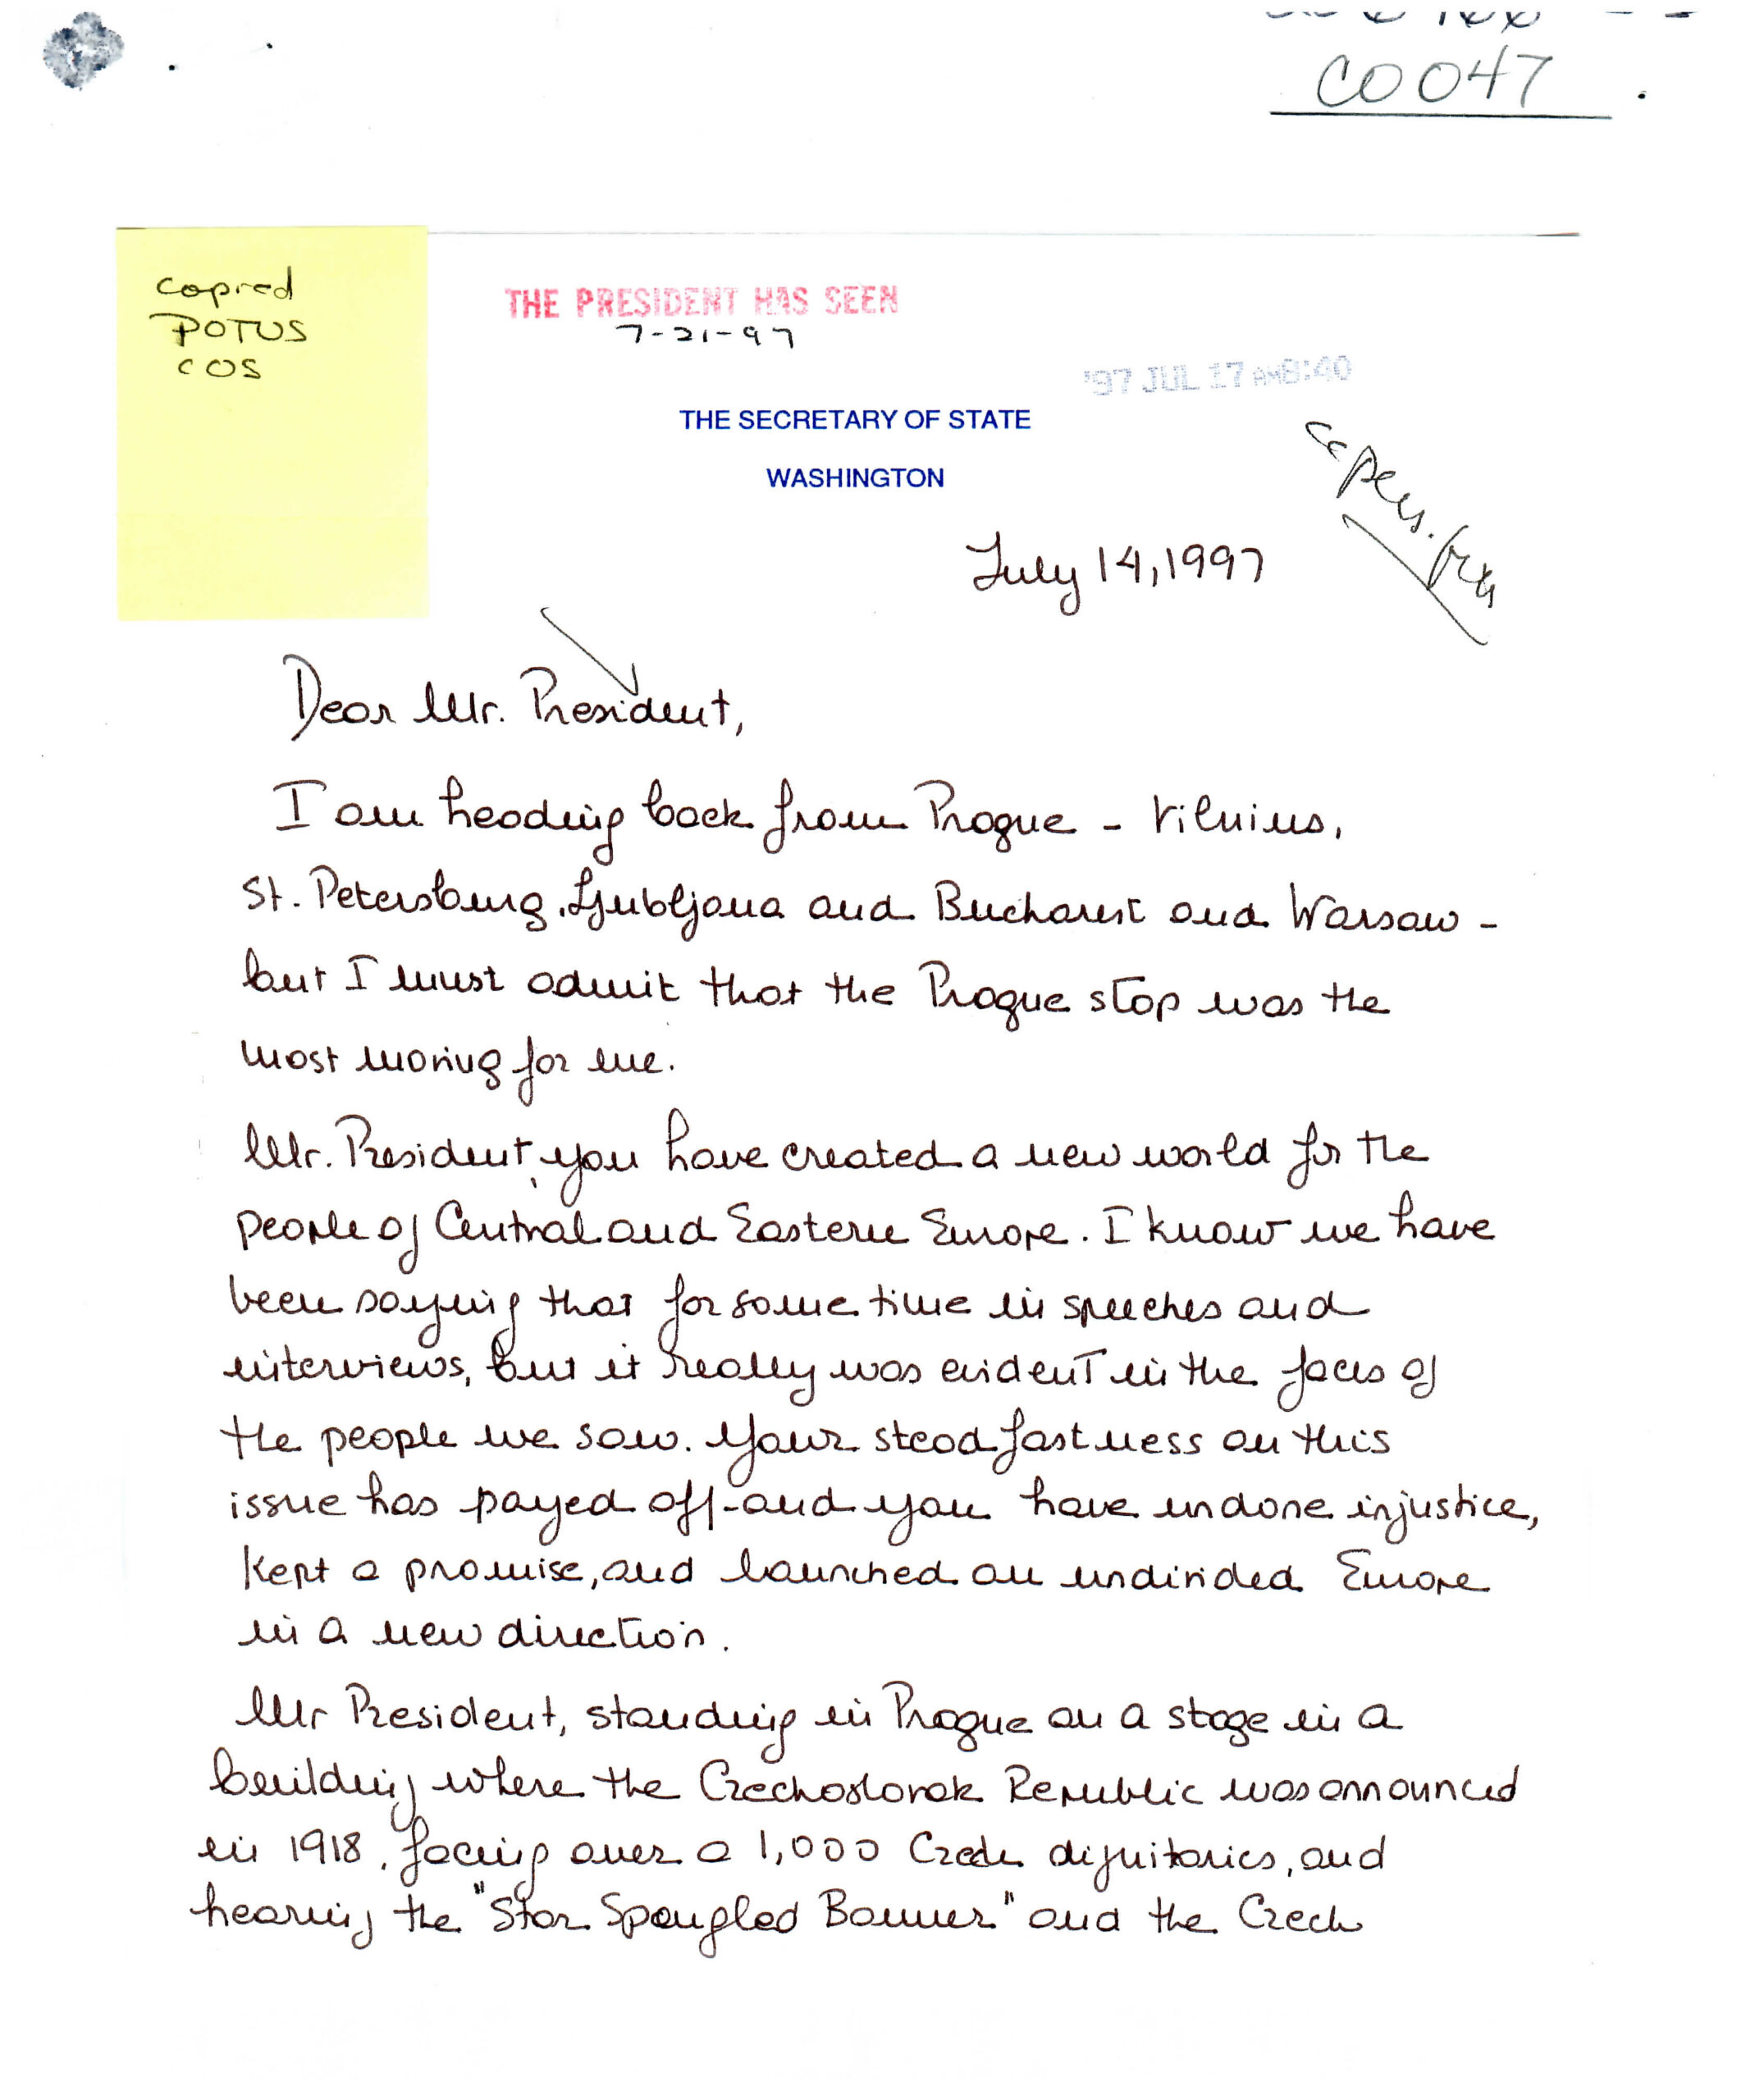 CO 047
copied
POTUS
COS
THE PRESIDENT HAS SEEN
7-21-97
'97 JUL 17 AM8:40
THE SECRETARY OF STATE
WASHINGTON
July 14, 1997
Dear Mr. President,
I am heading back from Prague - Vilnius,
St. Petersburg, Ljubljana and Bucharest and Warsaw -
but I must admit that the Prague stop was the
most moving for me.
Mr. President, you have created a new world for the
people of Central and Eastern Europe. I know we have
been saying that for some time in speeches and
interviews, but it really was evident in the faces of
the people we saw. Your steadfastness on this
issue has payed off - and you have undone injustice,
kept a promise, and launched an undivided Europe
in a new direction.
Mr President, standing in Prague on a stage in a
building where the Czechoslovak Republic was announced
in 1918, facing over a 1,000 Czech dignitaries, and
hearing the "Star Spangled Banner" and the Czech